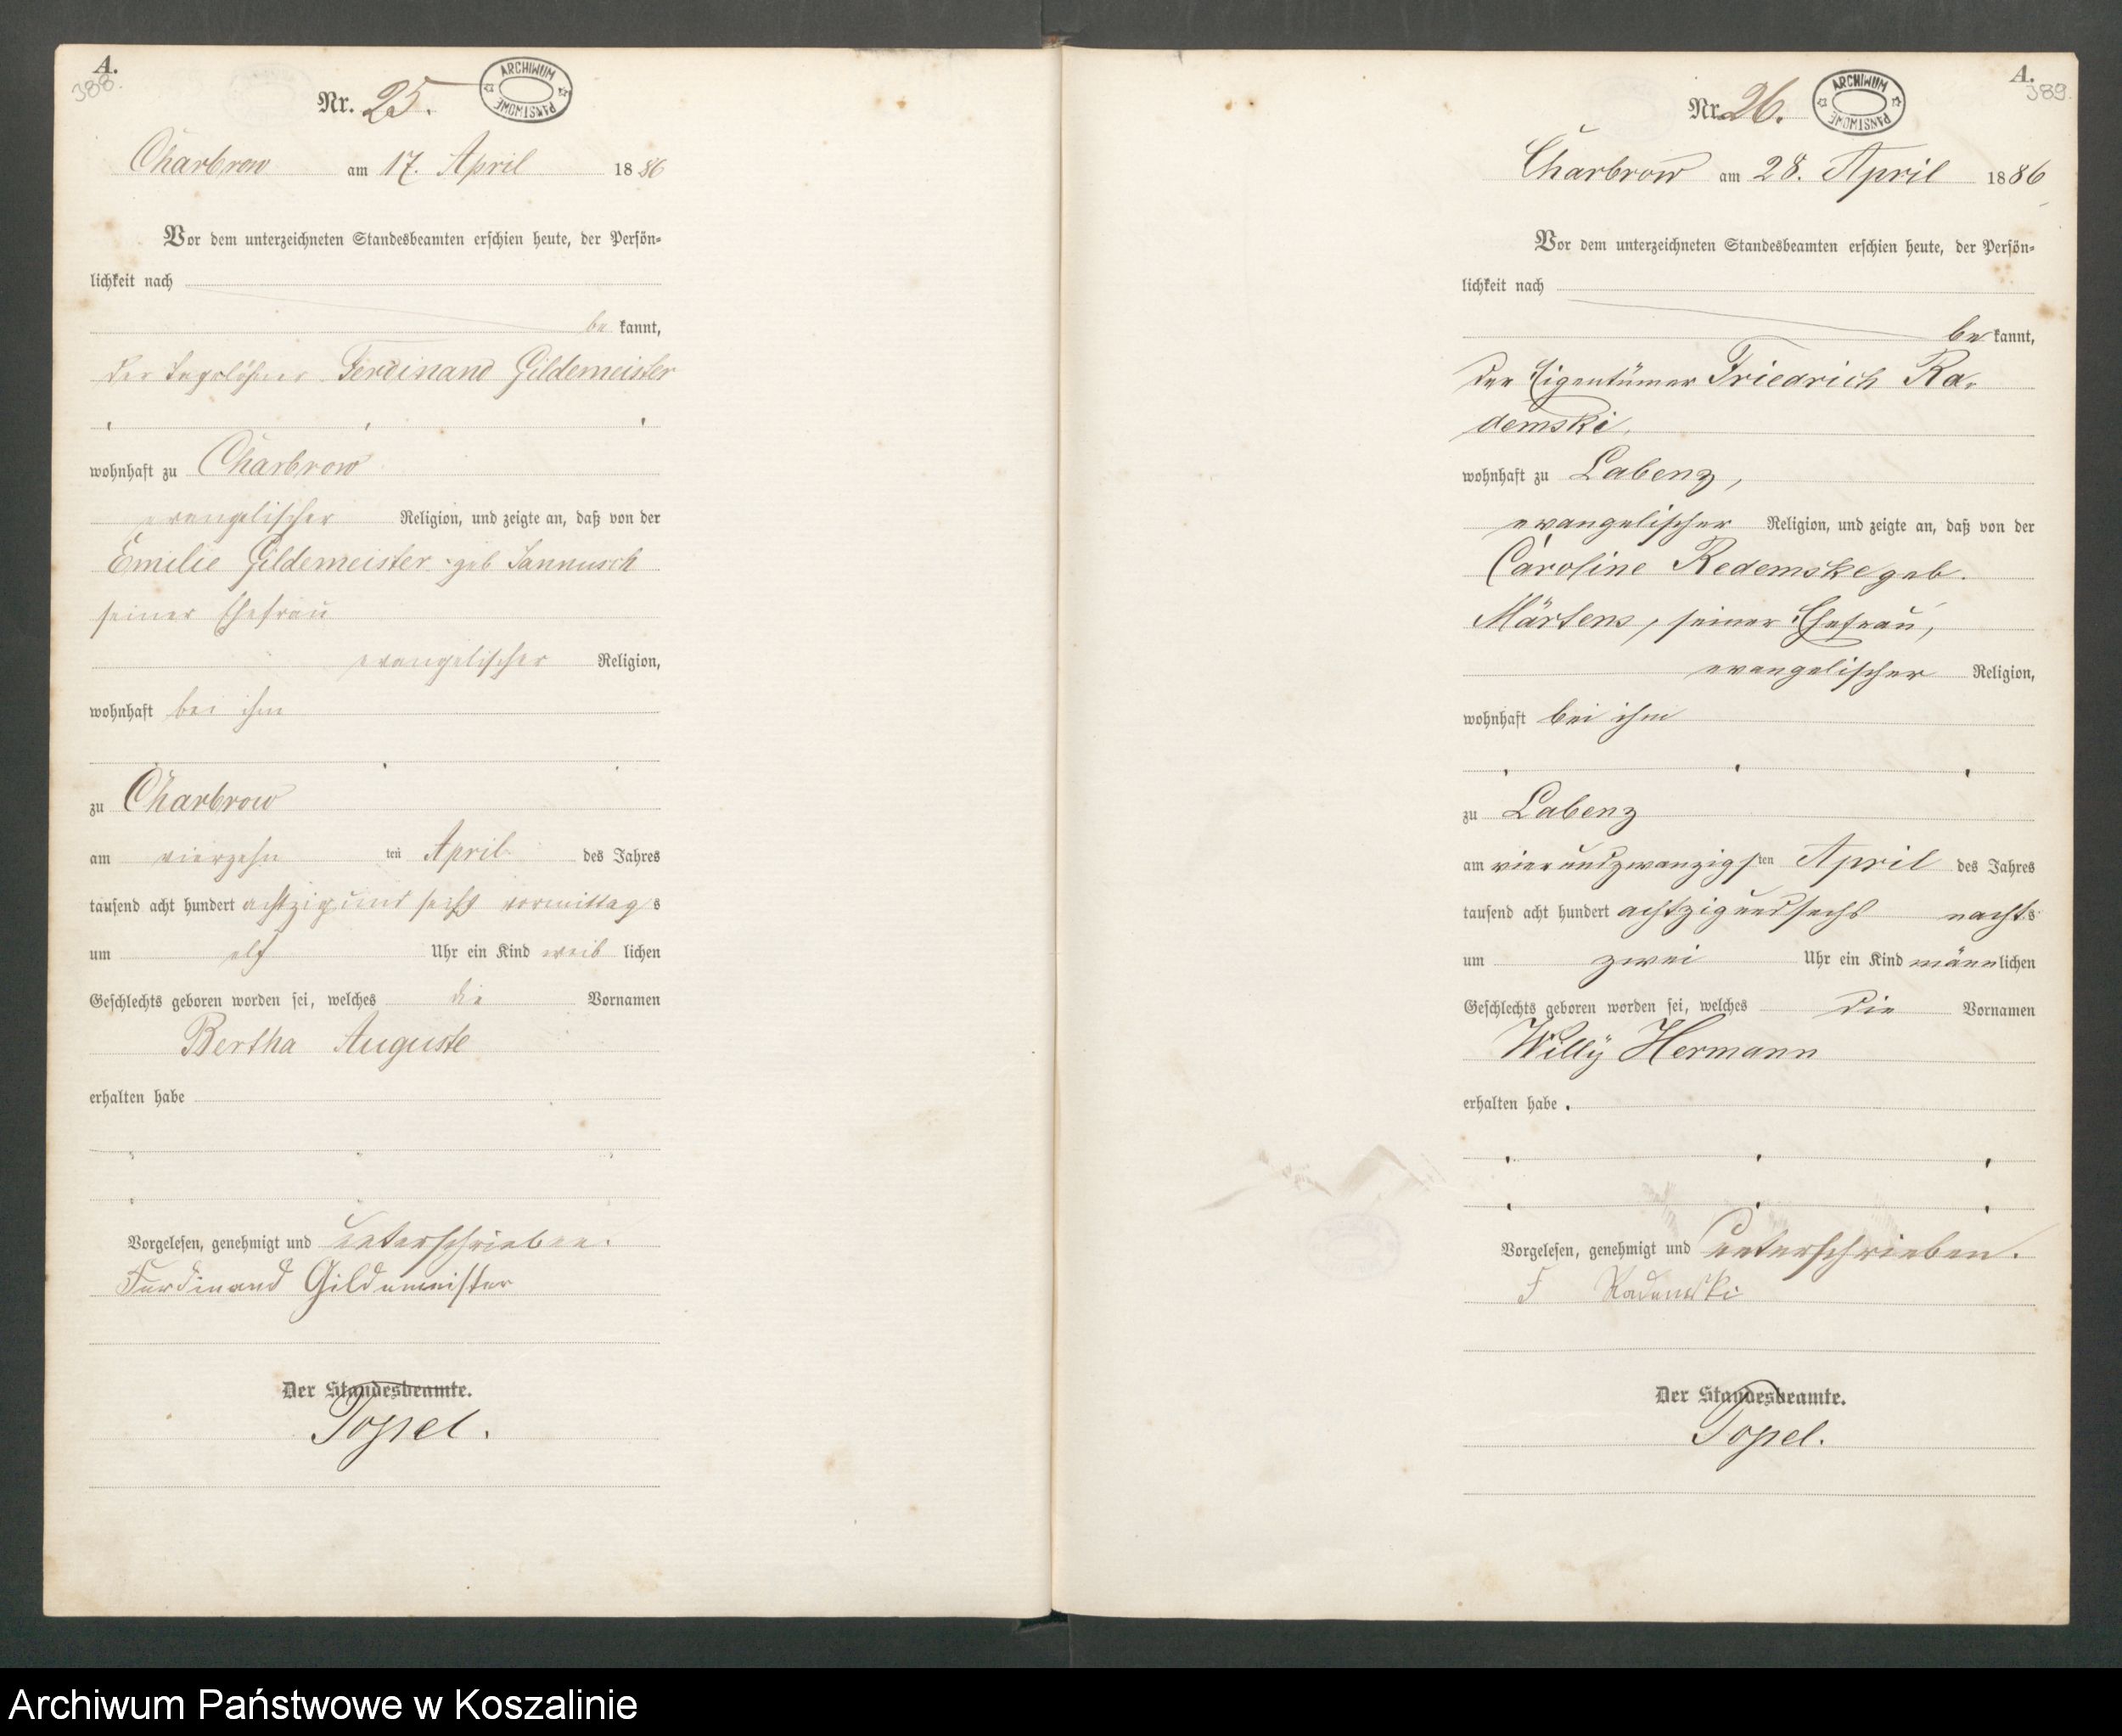 A.
388.
Nr. 25.
ARCHIWUM PAŃSTWOWE
Charbrow am 17. April 1886
Vor dem unterzeichneten Standesbeamten erschien heute, der Persön=
lichkeit nach
be kannt,
der Tagelöhner Ferdinand Gildemeister
wohnhaft zu Charbrow
evangelischer Religion, und zeigte an, daß von der
Emilie Gildemeister geb
seiner Ehefrau
evangelischer Religion,
wohnhaft bei ihm
zu Charbrow
am vierzehn ten April des Jahres
tausend acht hundert achtzig und sechs vormittags
um elf Uhr ein Kind weib lichen
Geschlechts geboren worden sei, welches die Vornamen
Bertha Auguste
erhalten habe
Vorgelesen, genehmigt und unterschrieben.
Ferdinand Gildemeister
Der Standesbeamte.
Topel.
A.
389.
Nr. 26.
ARCHIWUM PAŃSTWOWE
Charbrow am 28. April 1886
Vor dem unterzeichneten Standesbeamten erschien heute, der Persön=
lichkeit nach
be kannt,
der Eigentümer Friedrich Ra=
demski,
wohnhaft zu Labenz,
evangelischer Religion, und zeigte an, daß von der
Caroline Redemske geb.
Märtens, seiner Ehefrau,
evangelischer Religion,
wohnhaft bei ihm
zu Labenz
am vierundzwanzigsten April des Jahres
tausend acht hundert achtzig und sechs nachts
um zwei Uhr ein Kind männlichen
Geschlechts geboren worden sei, welches die Vornamen
Willÿ Hermann
erhalten habe.
Vorgelesen, genehmigt und unterschrieben.
F Rademski
Der Standesbeamte.
Topel.
Archiwum Państwowe w Koszalinie